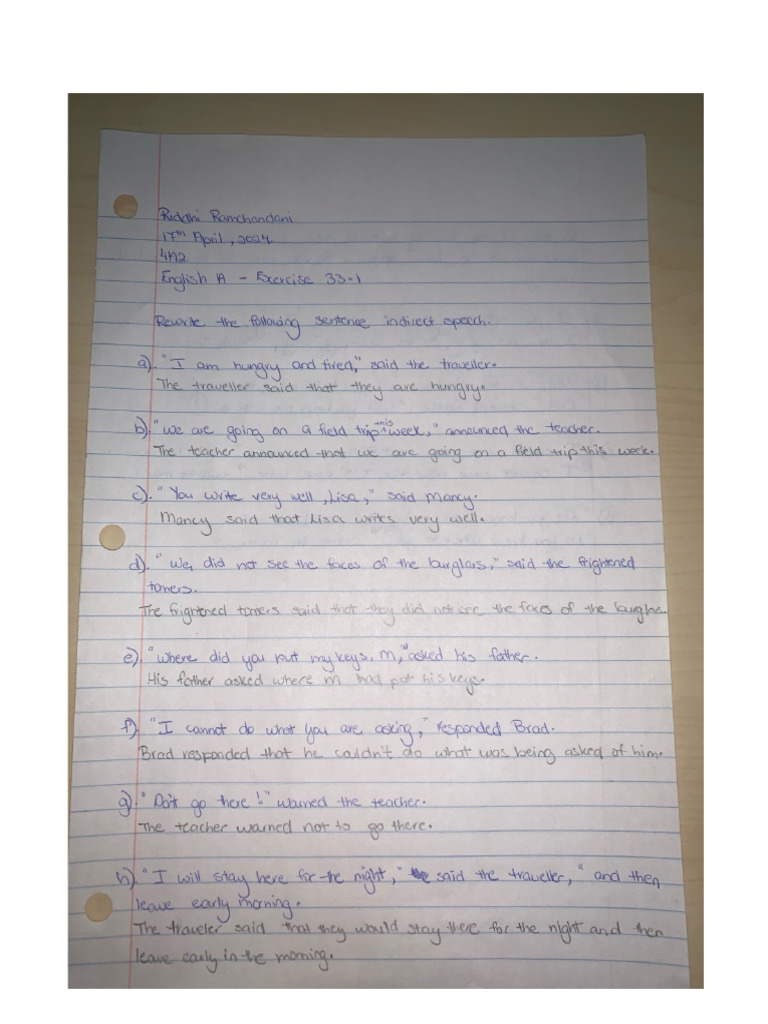 Riddhi Ramchandani
17th April, 2024.
4A2
English A - Exercise 33-1
Rewrite the following sentence indirect speech.
a). "I am hungry and tired," said the traveller.
The traveller said that they are hungry.
b). "We are going on a field trip this week," announced the teacher.
The teacher announced that we are going on a field trip this week.
c). "You write very well, Lisa," said Mancy.
Mancy said that Lisa writs very well.
d). "We, did not see the faces of the burglars," said the frightened
The frightened said that they did not see the faces of the
e). "Where did you put my keys, M," asked his father.
His father asked where M had put his keys.
f). "I cannot do what you are asking," responded Brad.
Brad responded that he couldn't do what was being asked of him.
g). "Do't go there!" warned the teacher.
The teacher warned not to go there.
h). "I will stay here for the night," said the traveller, "and then
leave early morning.
The traveler said that they would stay there for the night and then
leave early in the morning.